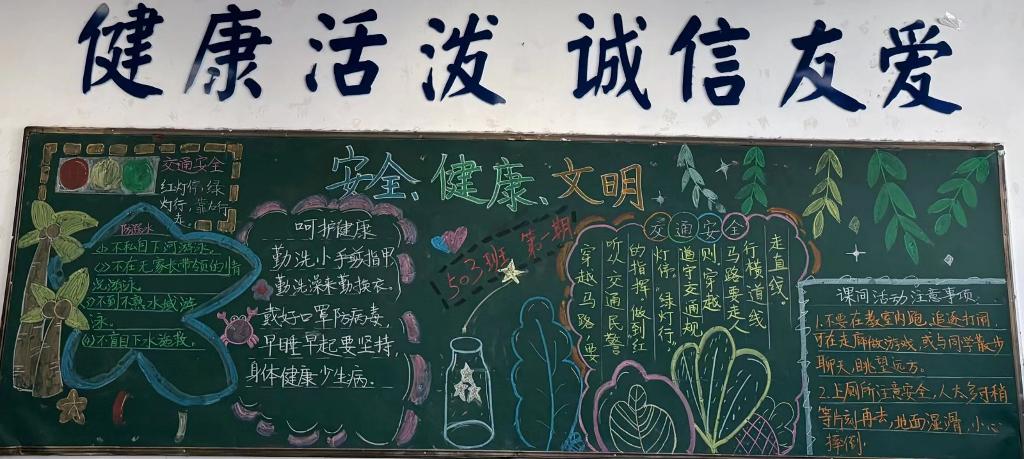 健康活泼 诚信友爱
安全、健康、文明
交通安全
红灯停，绿
灯行，靠右行
走
防溺水
不私自下河游泳。
(2)不在无家长带领的情
况游泳。
(3)不到不熟水域游
泳。
(4)不盲目下水施救。
呵护健康
勤洗小手剪指甲
勤洗澡来勤换衣。
戴好口罩防病毒，
早睡早起要坚持，
身体健康少生病。
503班 第一期
交通安全
走直线。
行横道线
马路要走人
则，穿越
遵守交通规
灯停。绿灯行。
的指挥，做到红
听从交通民警
穿越马路，要
课间活动注意事项
1.不要在教室内跑，追逐打闹
可在走廊做游戏，或与同学散步
聊天，眺望远方。
2.上厕所注意安全，人太多时稍
等片刻再去，地面湿滑，小心
摔倒。